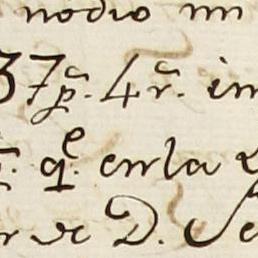 nodio mi
37 p̃. 4 r̃. im
q^e. en la
r de D. Se